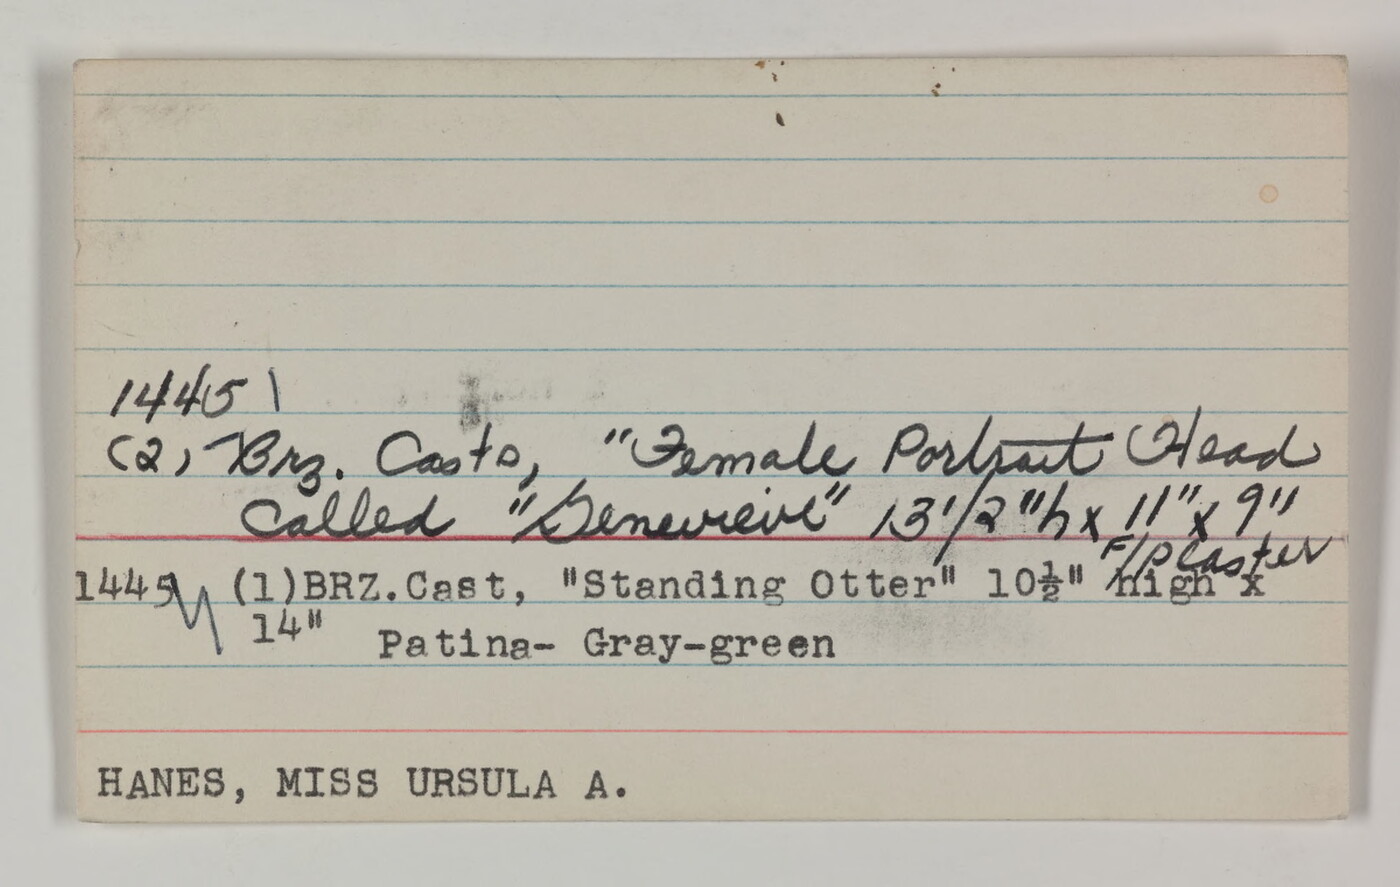 1445 \
(2) Brz. Casts, "Female Portrait Head
Called "Genevieve" 13 1/2"h x 11" x 9"
F/plaster
1445 (1)BRZ.Cast, "Standing Otter" 10½" high x
14" Patina- Gray-green
HANES, MISS URSULA A.